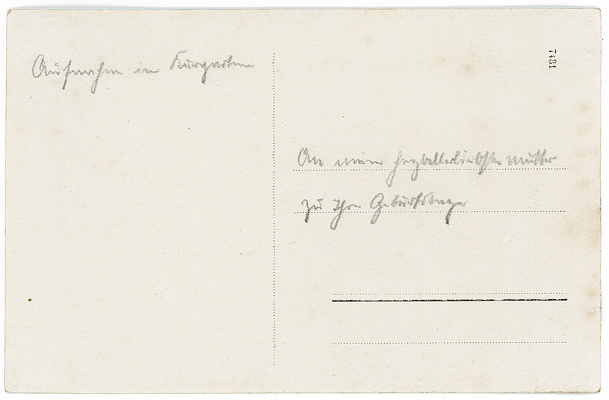 Aufnahme im Kurgarten
7481
An meine herzallerliebste Mutter
zu Ihrem Geburtstage